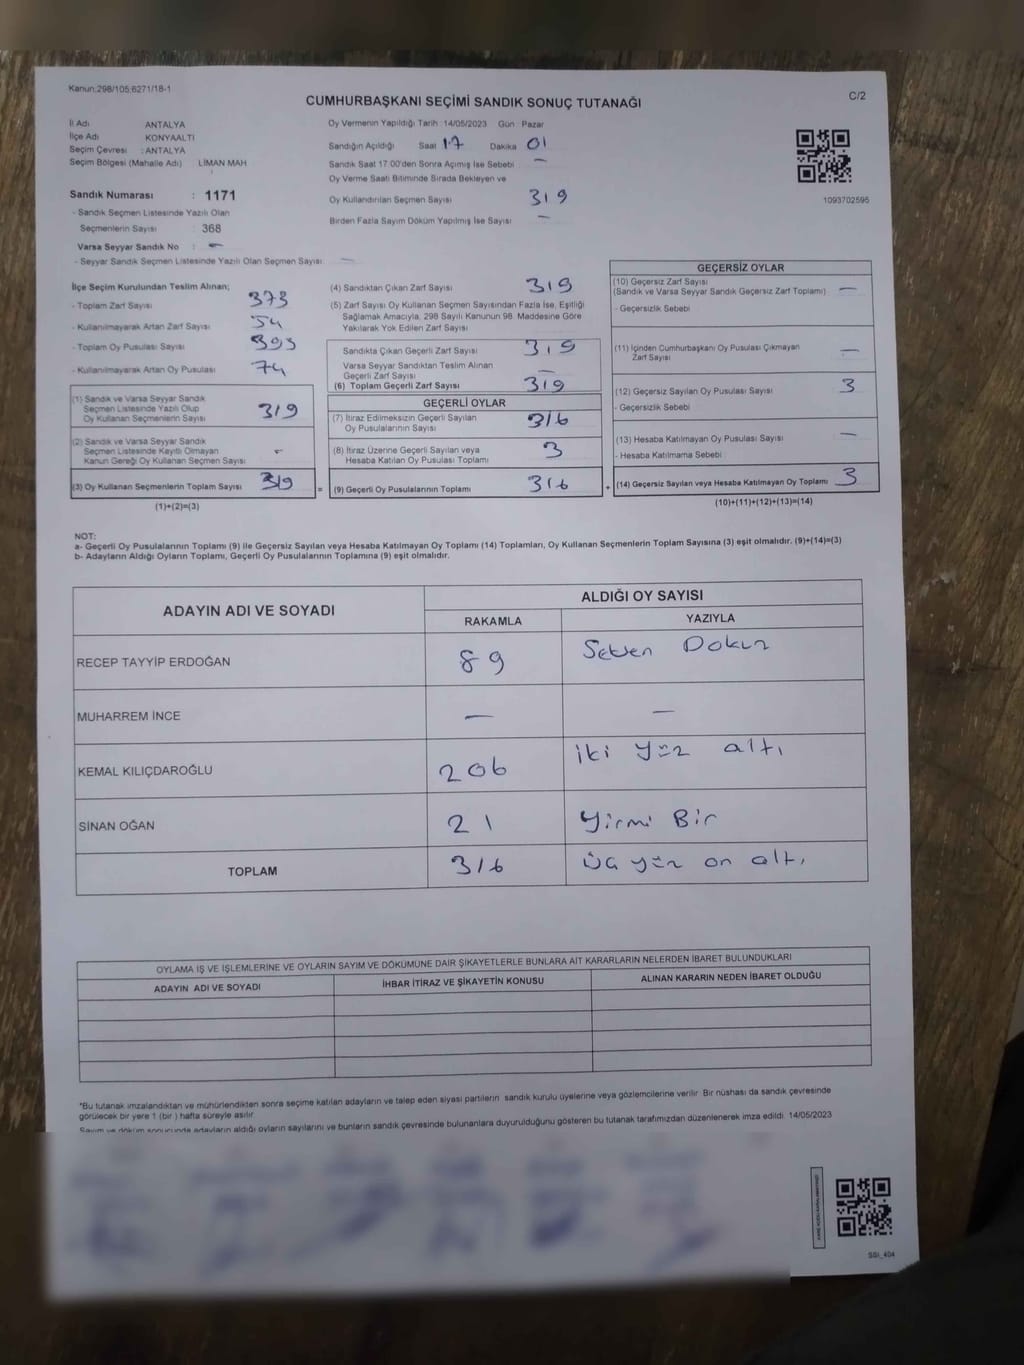 Kanun:298/105;6271/18-1
C/2
CUMHURBAŞKANI SEÇİMİ SANDIK SONUÇ TUTANAĞI
İl Adı ANTALYA
İlçe Adı KONYAALTI
Seçim Çevresi : ANTALYA
Seçim Bölgesi (Mahalle Adı) LİMAN MAH
Sandık Numarası : 1171
- Sandık Seçmen Listesinde Yazılı Olan
Seçmenlerin Sayısı 368
Varsa Seyyar Sandık No : -
- Seyyar Sandık Seçmen Listesinde Yazılı Olan Seçmen Sayısı: -
Oy Vermenin Yapıldığı Tarih :14/05/2023 Gün : Pazar
Sandığın Açıldığı Saat 17 Dakika 01
Sandık Saat 17.00'den Sonra Açılmış İse Sebebi -
Oy Verme Saati Bitiminde Sırada Bekleyen ve
Oy Kullandırılan Seçmen Sayısı 319
Birden Fazla Sayım Döküm Yapılmış İse Sayısı: -
1093702595
İlçe Seçim Kurulundan Teslim Alınan;
- Toplam Zarf Sayısı 373
- Kullanılmayarak Artan Zarf Sayısı 54
- Toplam Oy Pusulası Sayısı 393
- Kullanılmayarak Artan Oy Pusulası 74
(1) Sandık ve Varsa Seyyar Sandık
Seçmen Listesinde Yazılı Olup
Oy Kullanan Seçmenlerin Sayısı 319
(2) Sandık ve Varsa Seyyar Sandık
Seçmen Listesinde Kayıtlı Olmayan
Kanun Gereği Oy Kullanan Seçmen Sayısı -
(3) Oy Kullanan Seçmenlerin Toplam Sayısı 319
(1)+(2)=(3)
(4) Sandıktan Çıkan Zarf Sayısı 319
(5) Zarf Sayısı Oy Kullanan Seçmen Sayısından Fazla İse, Eşitliği
Sağlamak Amacıyla, 298 Sayılı Kanunun 98. Maddesine Göre
Yakılarak Yok Edilen Zarf Sayısı
Sandıkta Çıkan Geçerli Zarf Sayısı 319
Varsa Seyyar Sandıktan Teslim Alınan
Geçerli Zarf Sayısı -
(6) Toplam Geçerli Zarf Sayısı 319
GEÇERLİ OYLAR
(7) İtiraz Edilmeksizin Geçerli Sayılan
Oy Pusulalarının Sayısı 316
(8) İtiraz Üzerine Geçerli Sayılan veya
Hesaba Katılan Oy Pusulası Toplamı 3
= (9) Geçerli Oy Pusulalarının Toplamı 316
GEÇERSİZ OYLAR
(10) Geçersiz Zarf Sayısı
(Sandık ve Varsa Seyyar Sandık Geçersiz Zarf Toplamı) -
- Geçersizlik Sebebi
(11) İçinden Cumhurbaşkanı Oy Pusulası Çıkmayan
Zarf Sayısı -
(12) Geçersiz Sayılan Oy Pusulası Sayısı 3
- Geçersizlik Sebebi
(13) Hesaba Katılmayan Oy Pusulası Sayısı -
- Hesaba Katılmama Sebebi
+ (14) Geçersiz Sayılan veya Hesaba Katılmayan Oy Toplamı 3
(10)+(11)+(12)+(13)=(14)
NOT:
a- Geçerli Oy Pusulalarının Toplamı (9) ile Geçersiz Sayılan veya Hesaba Katılmayan Oy Toplamı (14) Toplamları, Oy Kullanan Seçmenlerin Toplam Sayısına (3) eşit olmalıdır. (9)+(14)=(3)
b- Adayların Aldığı Oyların Toplamı, Geçerli Oy Pusulalarının Toplamına (9) eşit olmalıdır.
ADAYIN ADI VE SOYADI ALDIĞI OY SAYISI
RAKAMLA YAZIYLA
RECEP TAYYİP ERDOĞAN 89 Seksen Dokuz
MUHARREM İNCE - -
KEMAL KILIÇDAROĞLU 206 iki yüz altı
SİNAN OĞAN 21 Yirmi Bir
TOPLAM 316 Üç yüz on altı
OYLAMA İŞ VE İŞLEMLERİNE VE OYLARIN SAYIM VE DÖKÜMÜNE DAİR ŞİKAYETLERLE BUNLARA AİT KARARLARIN NELERDEN İBARET BULUNDUKLARI
ADAYIN ADI VE SOYADI İHBAR İTİRAZ VE ŞİKAYETİN KONUSU ALINAN KARARIN NEDEN İBARET OLDUĞU
*Bu tutanak imzalandıktan ve mühürlendikten sonra seçime katılan adayların ve talep eden siyasi partilerin sandık kurulu üyelerine veya gözlemcilerine verilir. Bir nüshası da sandık çevresinde
görülecek bir yere 1 (bir ) hafta süreyle asılır.
Sayım ve döküm sonucunda adayların aldığı oyların sayılarını ve bunların sandık çevresinde bulunanlara duyurulduğunu gösteren bu tutanak tarafımızdan düzenlenerek imza edildi. 14/05/2023
SSI_404